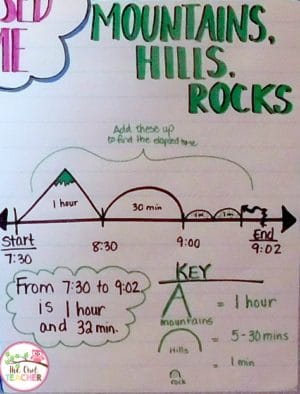 SED
ME
MOUNTAINS,
HILLS,
ROCKS
Add these up
to find the elapsed time
1 hour
30 min
1 m
1 m
Start
7:30
8:30
9:00
End
9:02
From 7:30 to 9:02
is 1 hour
and 32 min.
KEY
mountains
= 1 hour
Hills
= 5-30 mins
rock
= 1 min
The Owl
TEACHER